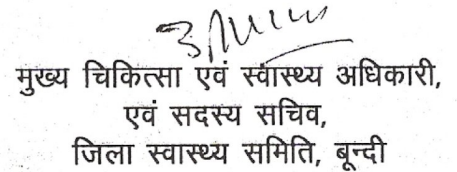 मुख्य चिकित्सा एवं स्वास्थ्य अधिकारी,
एवं सदस्य सचिव,
जिला स्वास्थ्य समिति, बून्दी